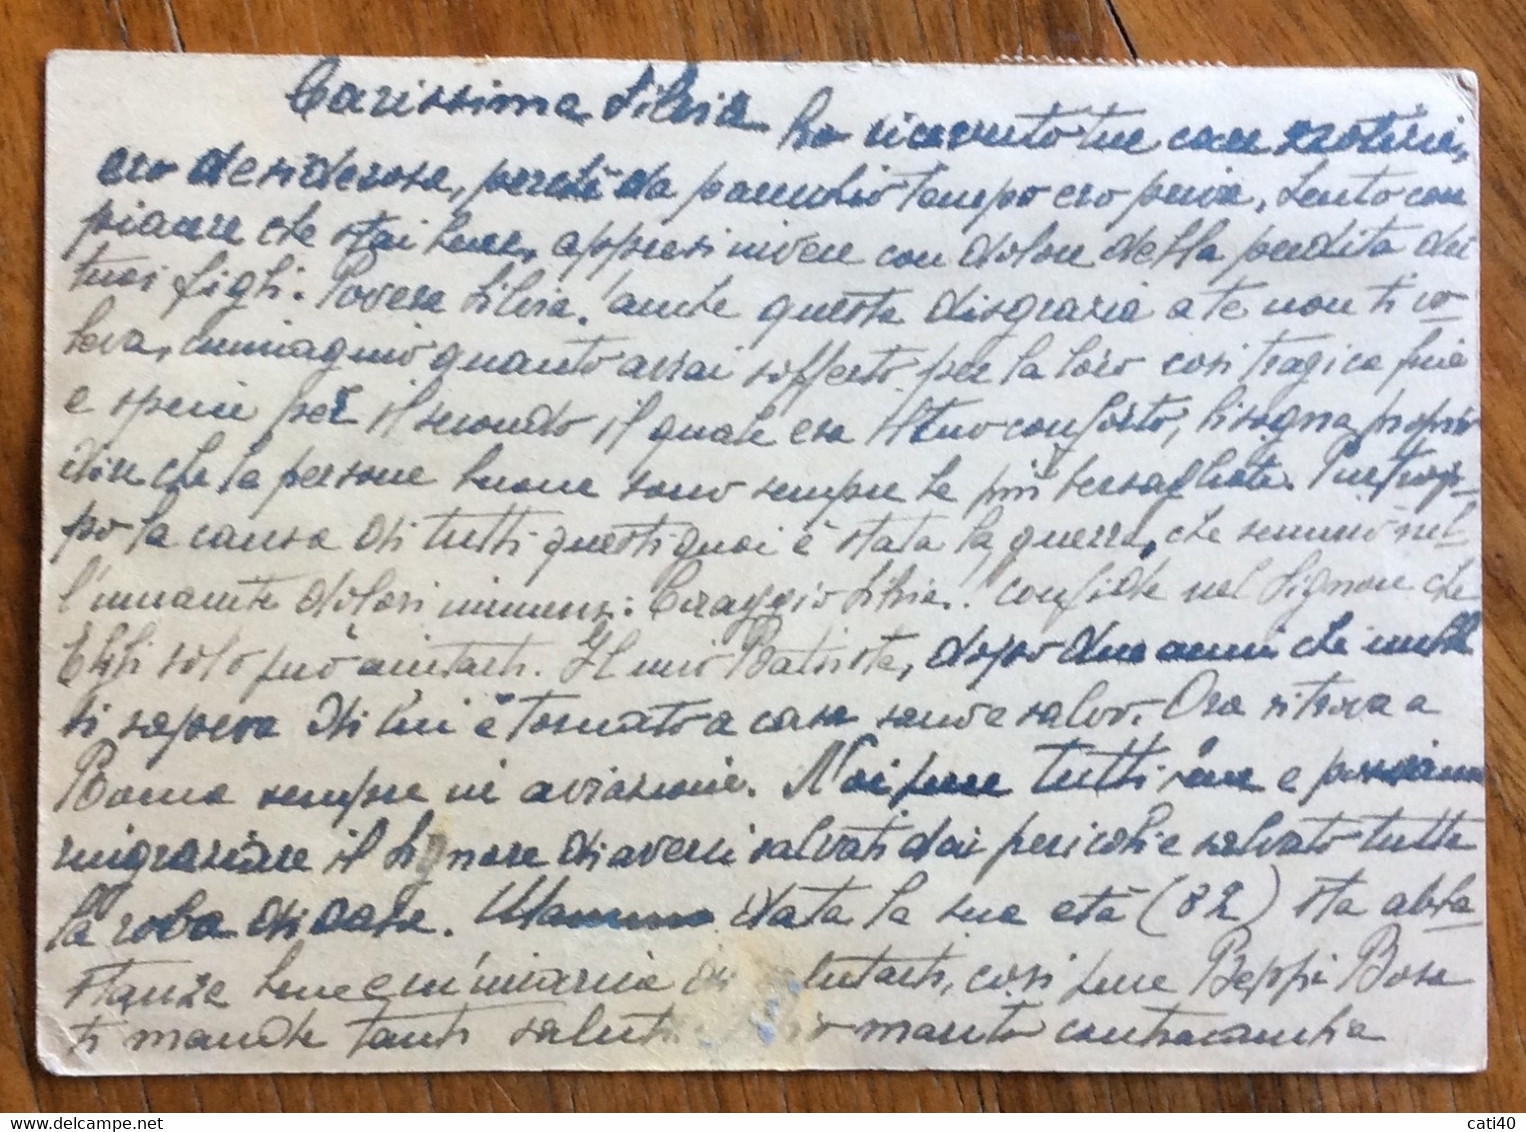 Carissima Silvia ho ricevuto tue care notizie,
ero desiderosa, perchè da parecchio tempo ero priva, sento con
piacere che stai bene, appresi invece con dolore della perdita dei
tuoi figli. Povera Silvia! anche questa disgrazia a te non ti vo-
leva, immagino quanto avrai sofferto per la loro così tragica fine
e specie per il secondo il quale era il tuo conforto, bisogna proprio
dire che le persone buone sono sempre le più bersagliate. Purtrop-
po la causa di tutti questi guai è stata la guerra, che seminò nel-
l'umanità dolori immensi: Coraggio Silvia! confida nel Signore che
Egli solo può aiutarti. Il mio Batista, dopo due anni che nulla
si sapeva di lui è tornato a casa sano e salvo. Ora si trova a
Roma sempre in aviazione. Noi pure tutti bene e possiamo
ringraziare il Signore di averci salvati dai pericoli e salvato tutta
la roba di casa. Mamma data la sua età (82) sta abba-
stanza bene e m'incarica di salutarti, così pure Beppi Bosa
ti manda tanti saluti mio marito contraccambia
cati40